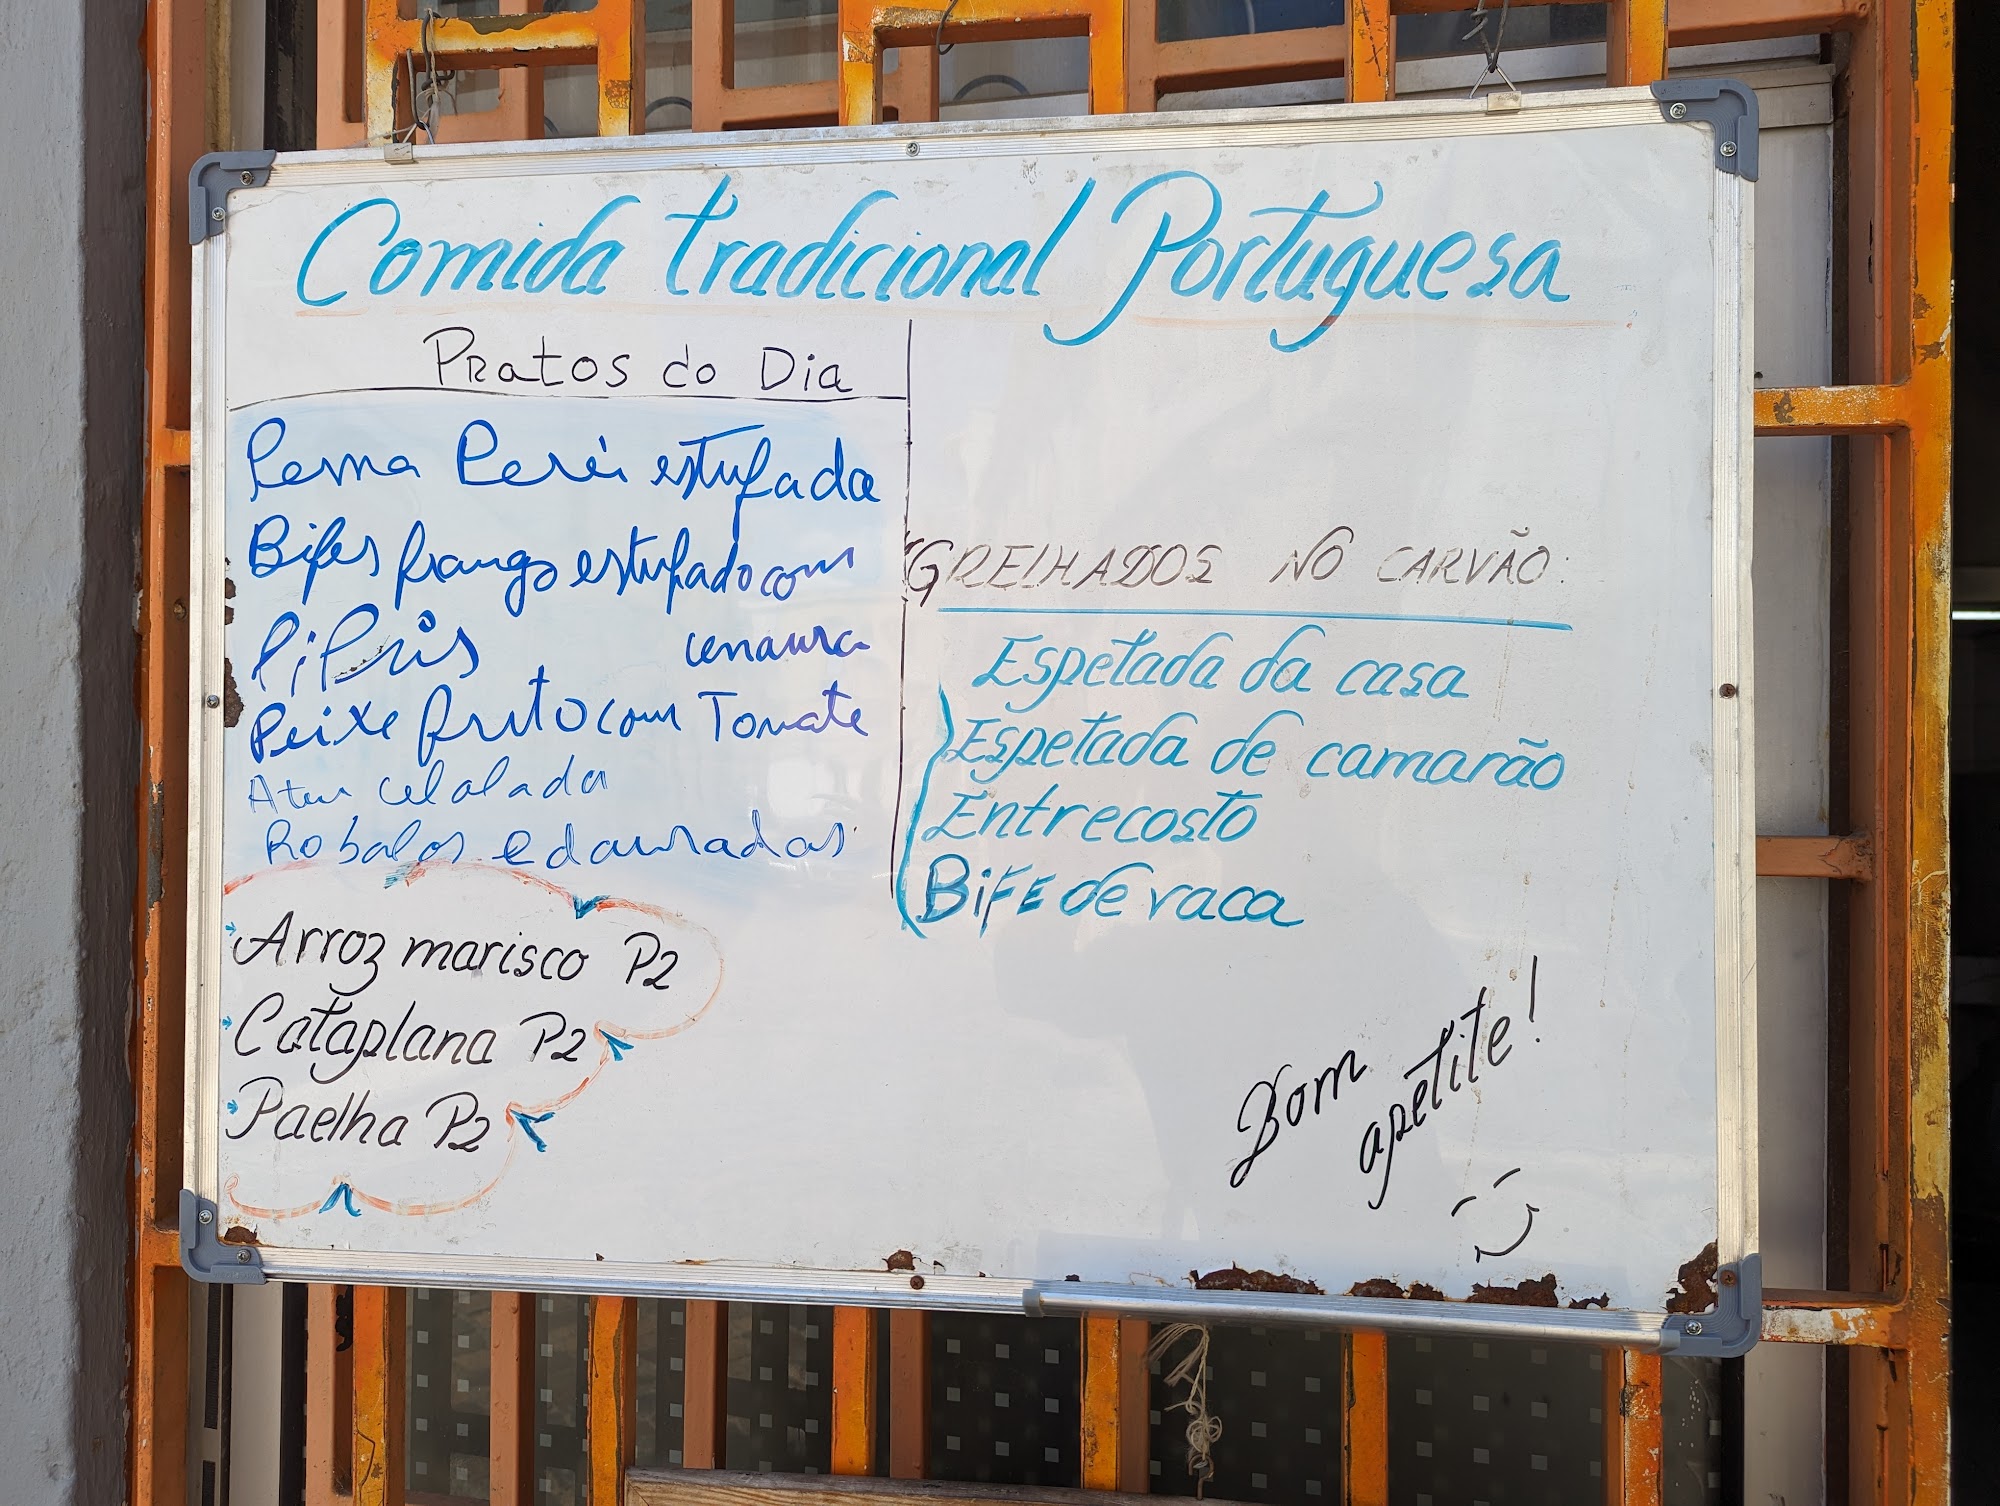 Comida tradicional Portuguesa
Pratos do Dia
Perna Peru estufada
Bifes frango estufado com
Pipis cenoura
Peixe frito com Tomate
Atum cebolada
Robalos e douradas
Arroz marisco P2
Cataplana P2
Paelha P2
GRELHADOS NO CARVÃO:
Espetada da casa
Espetada de camarão
Entrecosto
BIFE de vaca
Bom
apetite!